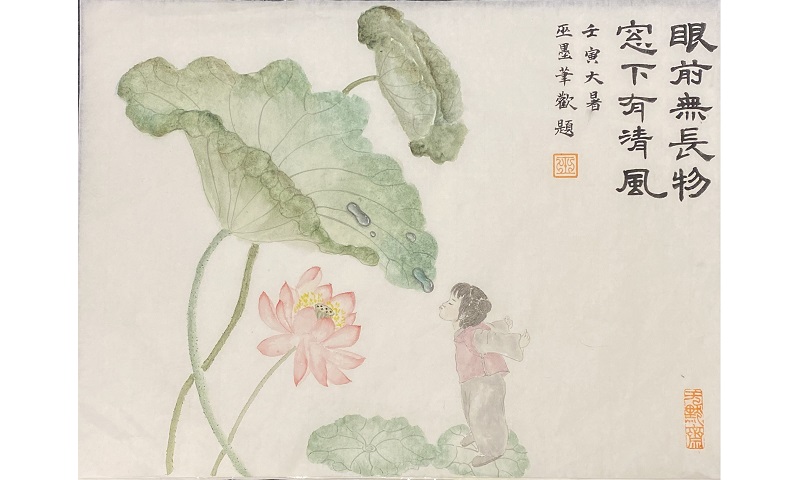 眼前無長物
窓下有清風
壬寅大暑
巫墨筆歡題